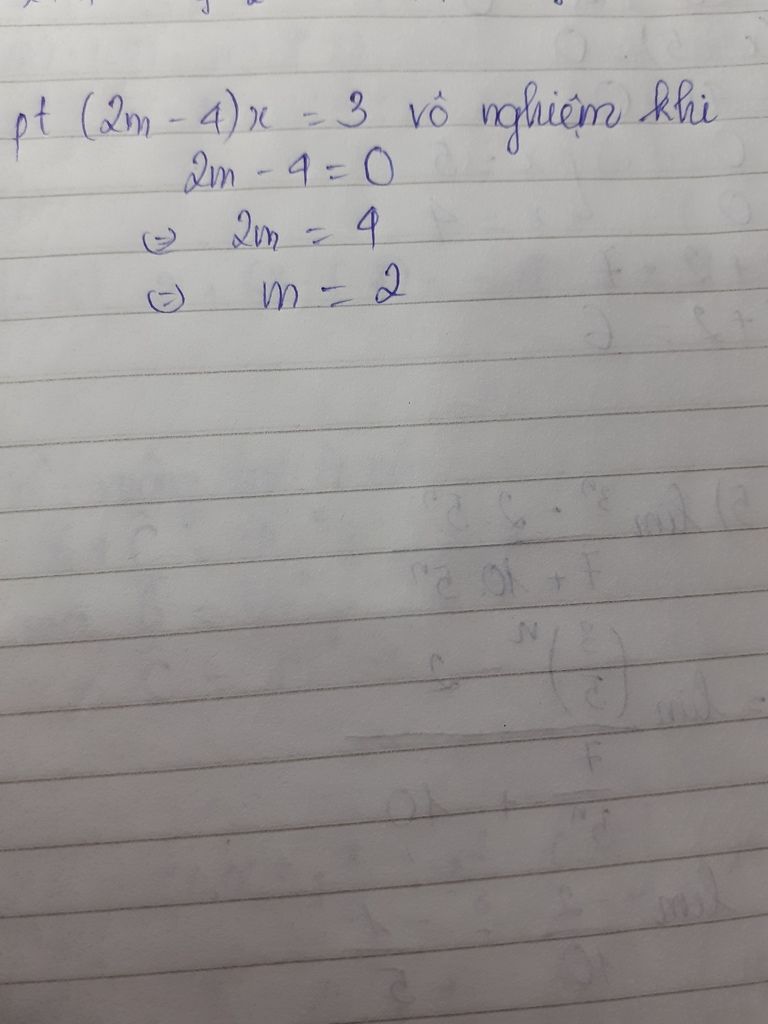 pt (2m - 4)x = 3 vô nghiệm khi
2m - 4 = 0
⇔ 2m = 4
⇔ m = 2